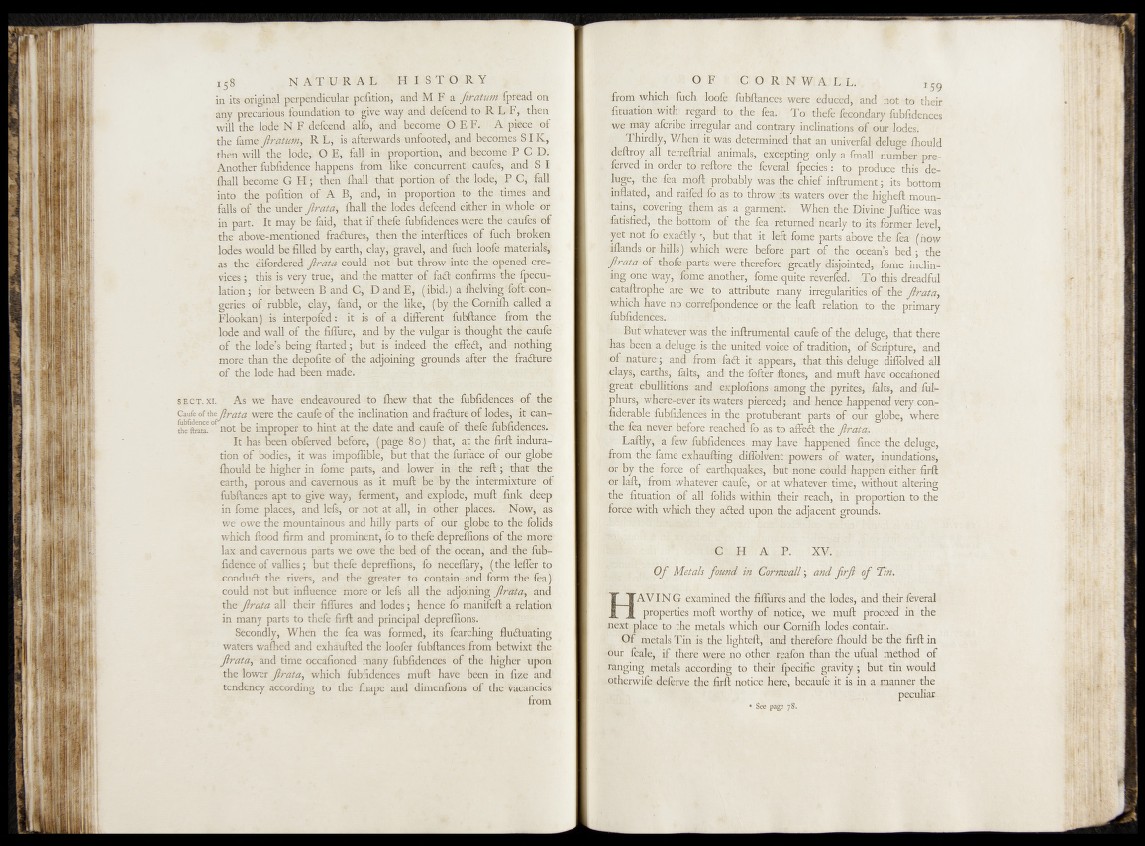 158 NATURAL HISTORY
in its original perpendicular poſition, and M F a ſtratum ſpread on
any precarious foundation to give way and deſcend to R L F, then
will the lode N F deſcend alſo, and become O E F. A piece of
the ſame ſtratum, R L, is afterwards unfooted, and becomes S I K,
then will the lode, O E, fall in proportion, and become P C D.
Another ſubſidence happens from like concurrent cauſes, and S I
ſhall become G H; then ſhall that portion of the lode, P C, fall
into the poſition of A B, and, in proportion to the times and
falls of the under ſtrata, ſhall the lodes deſcend either in whole or
in part. It may be ſaid, that if theſe ſubſidences were the cauſes of
the above-mentioned fractures, then the interſtices of ſuch broken
lodes would be filled by earth, clay, gravel, and ſuch looſe materials,
as the diſordered ſtrata could not but throw into the opened cre-
vices; this is very true, and the matter of fact confirms the ſpecu-
lation; for between B and C, D and E, (ibid.) a ſhelving ſoft con-
geries of rubble, clay, ſand, or the like, (by the Corniſh called a
Flookan) is interpoſed: it is of a different ſubſtance from the
lode and wall of the fiſſure, and by the vulgar is thought the cauſe
of the lode's being ſtarted; but is indeed the effect, and nothing
more than the depoſite of the adjoining grounds after the fracture
of the lode had been made.
SECT. XI. As we have endeavoured to ſhew that the ſubſidences of the
Cauſe of the ſtrata were the cauſe of the inclination and fracture of lodes, it can-
ſubſidence of
the ſtrata. not be improper to hint at the date and cauſe of theſe ſubſidences.
It has been obſerved before, (page 80) that, at the firſt indura-
tion of bodies, it was impoſſible, but that the ſurface of our globe
ſhould be higher in ſome parts, and lower in the reſt; that the
earth, porous and cavernous as it muſt be by the intermixture of
ſubſtances apt to give way, ferment, and explode, muſt ſink deep
in ſome places, and leſs, or not at all, in other places. Now, as
we owe the mountainous and hilly parts of our globe to the ſolids
which ſtood firm and prominent, ſo to theſe depreſſions of the more
lax and cavernous parts we owe the bed of the ocean, and the ſub-
ſidence of vallies; but theſe depreſſions, ſo neceſſary, (the leſſer to
conduct the rivers, and the greater to contain and form the ſea)
could not but influence more or leſs all the adjoining ſtrata, and
the ſtrata all their fiſſures and lodes; hence ſo manifeſt a relation
in many parts to theſe firſt and principal depreſſions.
Secondly, When the ſea was formed, its ſearching fluctuating
waters waſhed and exhauſted the looſer ſubſtances from betwixt the
ſtrata, and time occaſioned many ſubſidences of the higher upon
the lower ſtrata, which ſubſidences muſt have been in ſize and
tendency according to the ſhape and dimenſions of the vacancies
from
OF CORNWALL. 159
from which ſuch looſe ſubſtances were educed, and not to their
ſituation with regard to the ſea. To theſe ſecondary ſubſidences
we may aſcribe irregular and contrary inclinations of our lodes.
Thirdly, When it was determined that an univerſal deluge ſhould
deſtroy all terreſtrial animals, excepting only a ſmall number pre-
ſerved in order to reſtore the ſeveral ſpecies: to produce this de-
luge, the ſea moſt probably was the chief inſtrument; its bottom
inflated, and raiſed ſo as to throw its waters over the higheſt moun-
tains, covering them as a garment. When the Divine Juſtice was
ſatisfied, the bottom of the ſea returned nearly to its former level,
yet not ſo exactly *, but that it left ſome parts above the ſea (now
iſlands or hills) which were before part of the ocean's bed; the
ſtrata of thoſe parts were therefore greatly disjointed, ſome inclin-
ing one way, ſome another, ſome quite reverſed. To this dreadful
cataſtrophe are we to attribute many irregularities of the ſtrata,
which have no correſpondence or the leaſt relation to the primary
ſubſidences.
But whatever was the inſtrumental cauſe of the deluge, that there
has been a deluge is the united voice of tradition, of Scripture, and
of nature; and from fact it appears, that this deluge diſſolved all
clays, earths, ſalts, and the ſofter ſtones, and muſt have occaſioned
great ebullitions and exploſions among the pyrites, ſalts, and ſul-
phurs, where-ever its waters pierced; and hence happened very con-
ſiderable ſubſidences in the protuberant parts of our globe, where
the ſea never before reached ſo as to affect the ſtrata.
Laſtly, a few ſubſidences may have happened ſince the deluge,
from the ſame exhauſting diſſolvent powers of water, inundations,
or by the force of earthquakes, but none could happen either firſt
or laſt, from whatever cauſe, or at whatever time, without altering
the ſituation of all ſolids within their reach, in proportion to the
force with which they acted upon the adjacent grounds.
CHAP. XV.
Of Metals found in Cornwall; and firſt of Tin.
HAVING examined the fiſſures and the lodes, and their ſeveral
properties moſt worthy of notice, we muſt proceed in the
next place to the metals which our Corniſh lodes contain.
Of metals Tin is the lighteſt, and therefore ſhould be the firſt in
our ſcale, if there were no other reaſon than the uſual method of
ranging metals according to their ſpecific gravity; but tin would
otherwiſe deſerve the firſt notice here, becauſe it is in a manner the
peculiar
* See page 78.